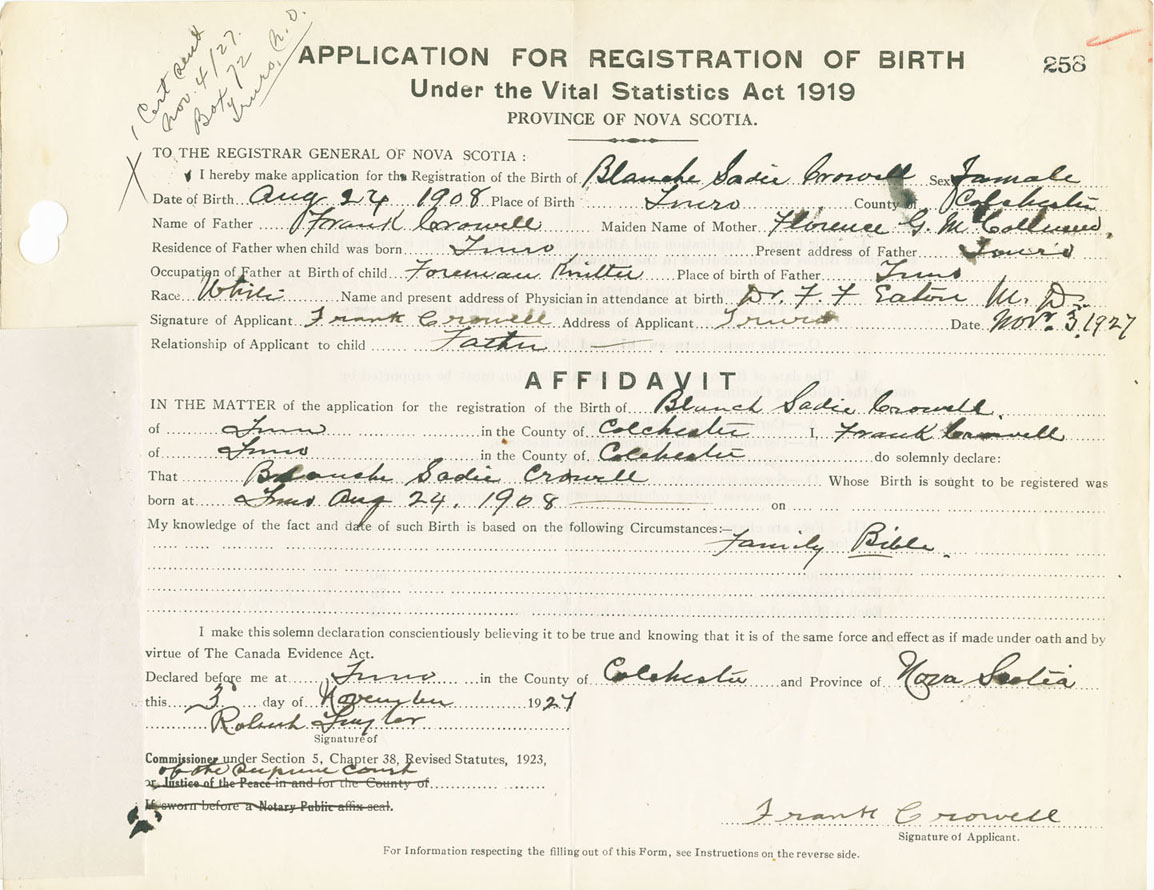 1 Cert sent
Nov. 4/27.
Box 72
Truro, N.S.
APPLICATION FOR REGISTRATION OF BIRTH
258
Under the Vital Statistics Act 1919
PROVINCE OF NOVA SCOTIA.
X
TO THE REGISTRAR GENERAL OF NOVA SCOTIA :
I hereby make application for the Registration of the Birth of Blanche Sadie Crowell Sex Famale
Date of Birth Aug 24 1908 Place of Birth Truro County of Colchester
Name of Father Frank Crowell Maiden Name of Mother Florence G. M.
Residence of Father when child was born Truro Present address of Father Truro
Occupation of Father at Birth of child Foreman Knitter Place of birth of Father Truro
Race White Name and present address of Physician in attendance at birth Dr. F. F. Eaton M. D.
Signature of Applicant Frank Crowell Address of Applicant Truro Date Nov. 3, 1927
Relationship of Applicant to child Father
AFFIDAVIT
IN THE MATTER of the application for the registration of the Birth of Blanch Sadie Crowell.
of Truro in the County of Colchester I, Frank Crowell
of Truro in the County of Colchester do solemnly declare:
That Blanche Sadie Crowell Whose Birth is sought to be registered was
born at Truro Aug 24, 1908 on
My knowledge of the fact and date of such Birth is based on the following Circumstances:—
Family Bible.
I make this solemn declaration conscientiously believing it to be true and knowing that it is of the same force and effect as if made under oath and by
virtue of The Canada Evidence Act.
Declared before me at Truro in the County of Colchester and Province of Nova Scotia
this 3 day of November 1927
Robert
Signature of
Commissioner under Section 5, Chapter 38, Revised Statutes, 1923,
of the supreme court
or Justice of the Peace in and for the County of
If sworn before a Notary Public affix seal.
Frank Crowell
Signature of Applicant.
For Information respecting the filling out of this Form, see Instructions on the reverse side.